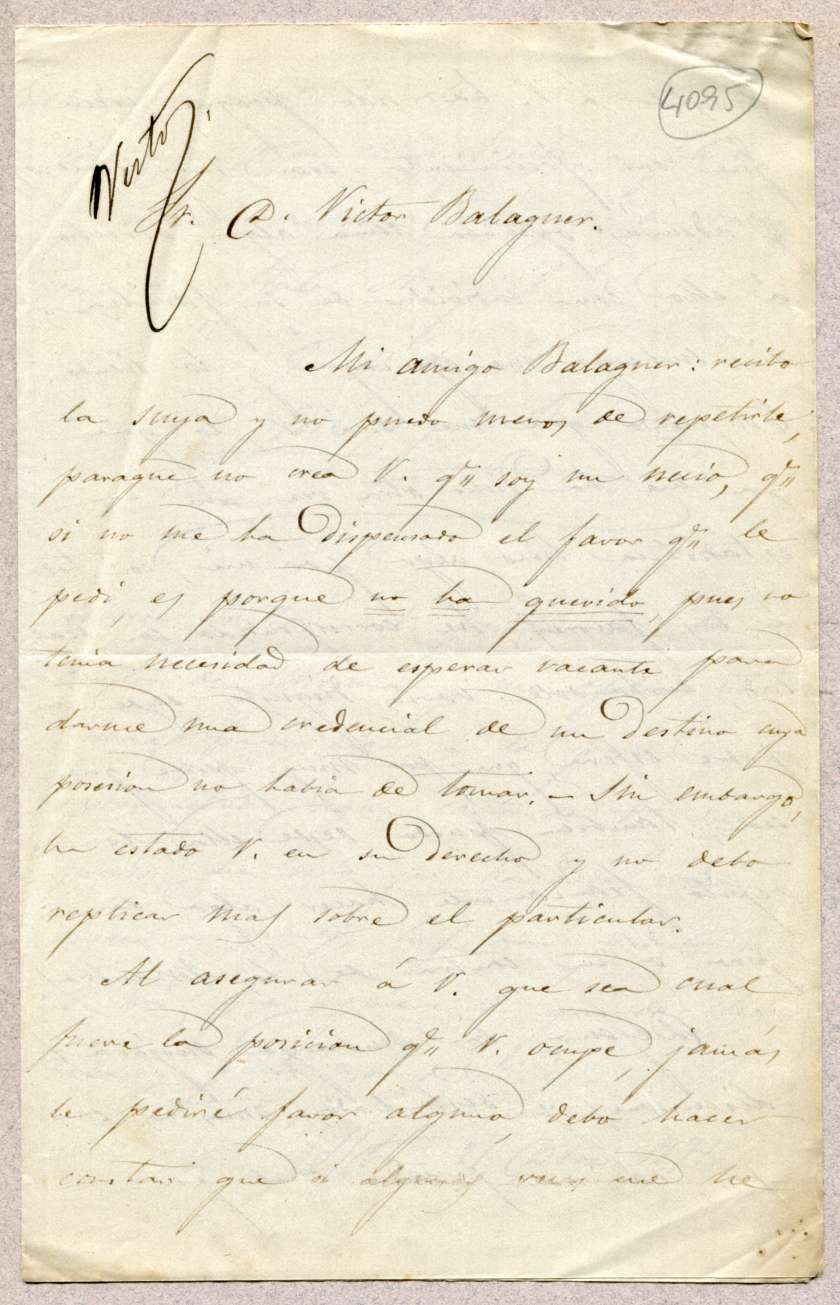 4095
Visto
Sr. D. Victor Balaguer.
Mi amigo Balaguer: recibo
la suya y no puedo menos de repetirle,
paraque no crea V. qᵉ soy un necio, qᵉ
si no me ha dispensado el favor qᵉ le
pedí, es porque no ha querido, pues no
tenia necesidad de esperar vacante para
darme una credencial de un destino cuya
posesion no habia de tomar. — Sin embargo,
ha estado V. en su derecho y no debo
replicar mas sobre el particular.
Al asegurar á V. que sea cual
fuere la posicion qᵉ V. ocupe, jamás
le pediré favor alguno, debo hacer
constar que si algunas veces me he